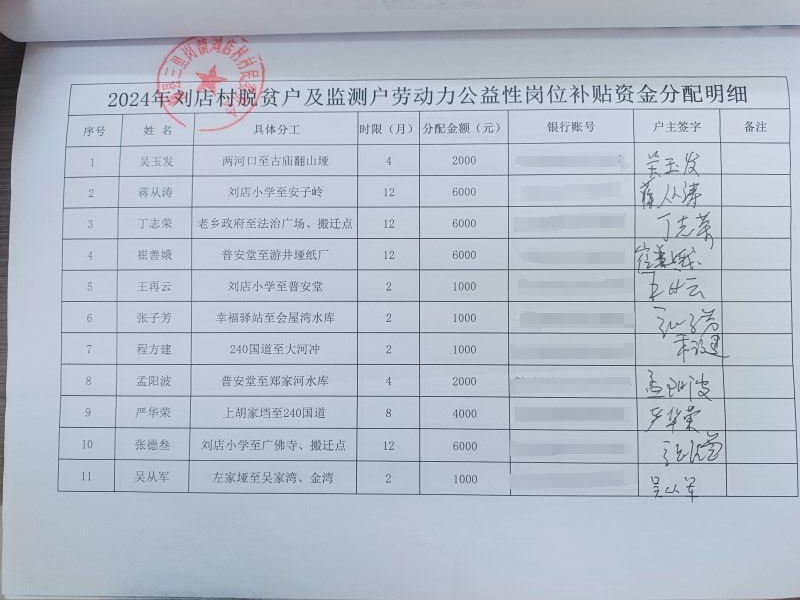 2024年刘店村脱贫户及监测户劳动力公益性岗位补贴资金分配明细
序号 姓 名 具体分工 时限（月） 分配金额（元） 银行账号 户主签字 备注
1 吴玉发 两河口至古庙翻山垭 4 2000 吴玉发
2 蒋从涛 刘店小学至安子岭 12 6000 蒋从涛
3 丁志荣 老乡政府至法治广场、搬迁点 12 6000 丁志荣
4 崔善娥 普安堂至游井垭纸厂 12 6000 崔善娥
5 王再云 刘店小学至普安堂 2 1000 王再云
6 张子芳 幸福驿站至会屋湾水库 2 1000 张子芳
7 程方建 240国道至大河冲 2 1000
8 孟阳波 普安堂至郑家河水库 4 2000 孟阳波
9 严华荣 上胡家垱至240国道 8 4000 严华荣
10 张德叁 刘店小学至广佛寺、搬迁点 12 6000
11 吴从军 左家垭至吴家湾、金湾 2 1000 吴从军